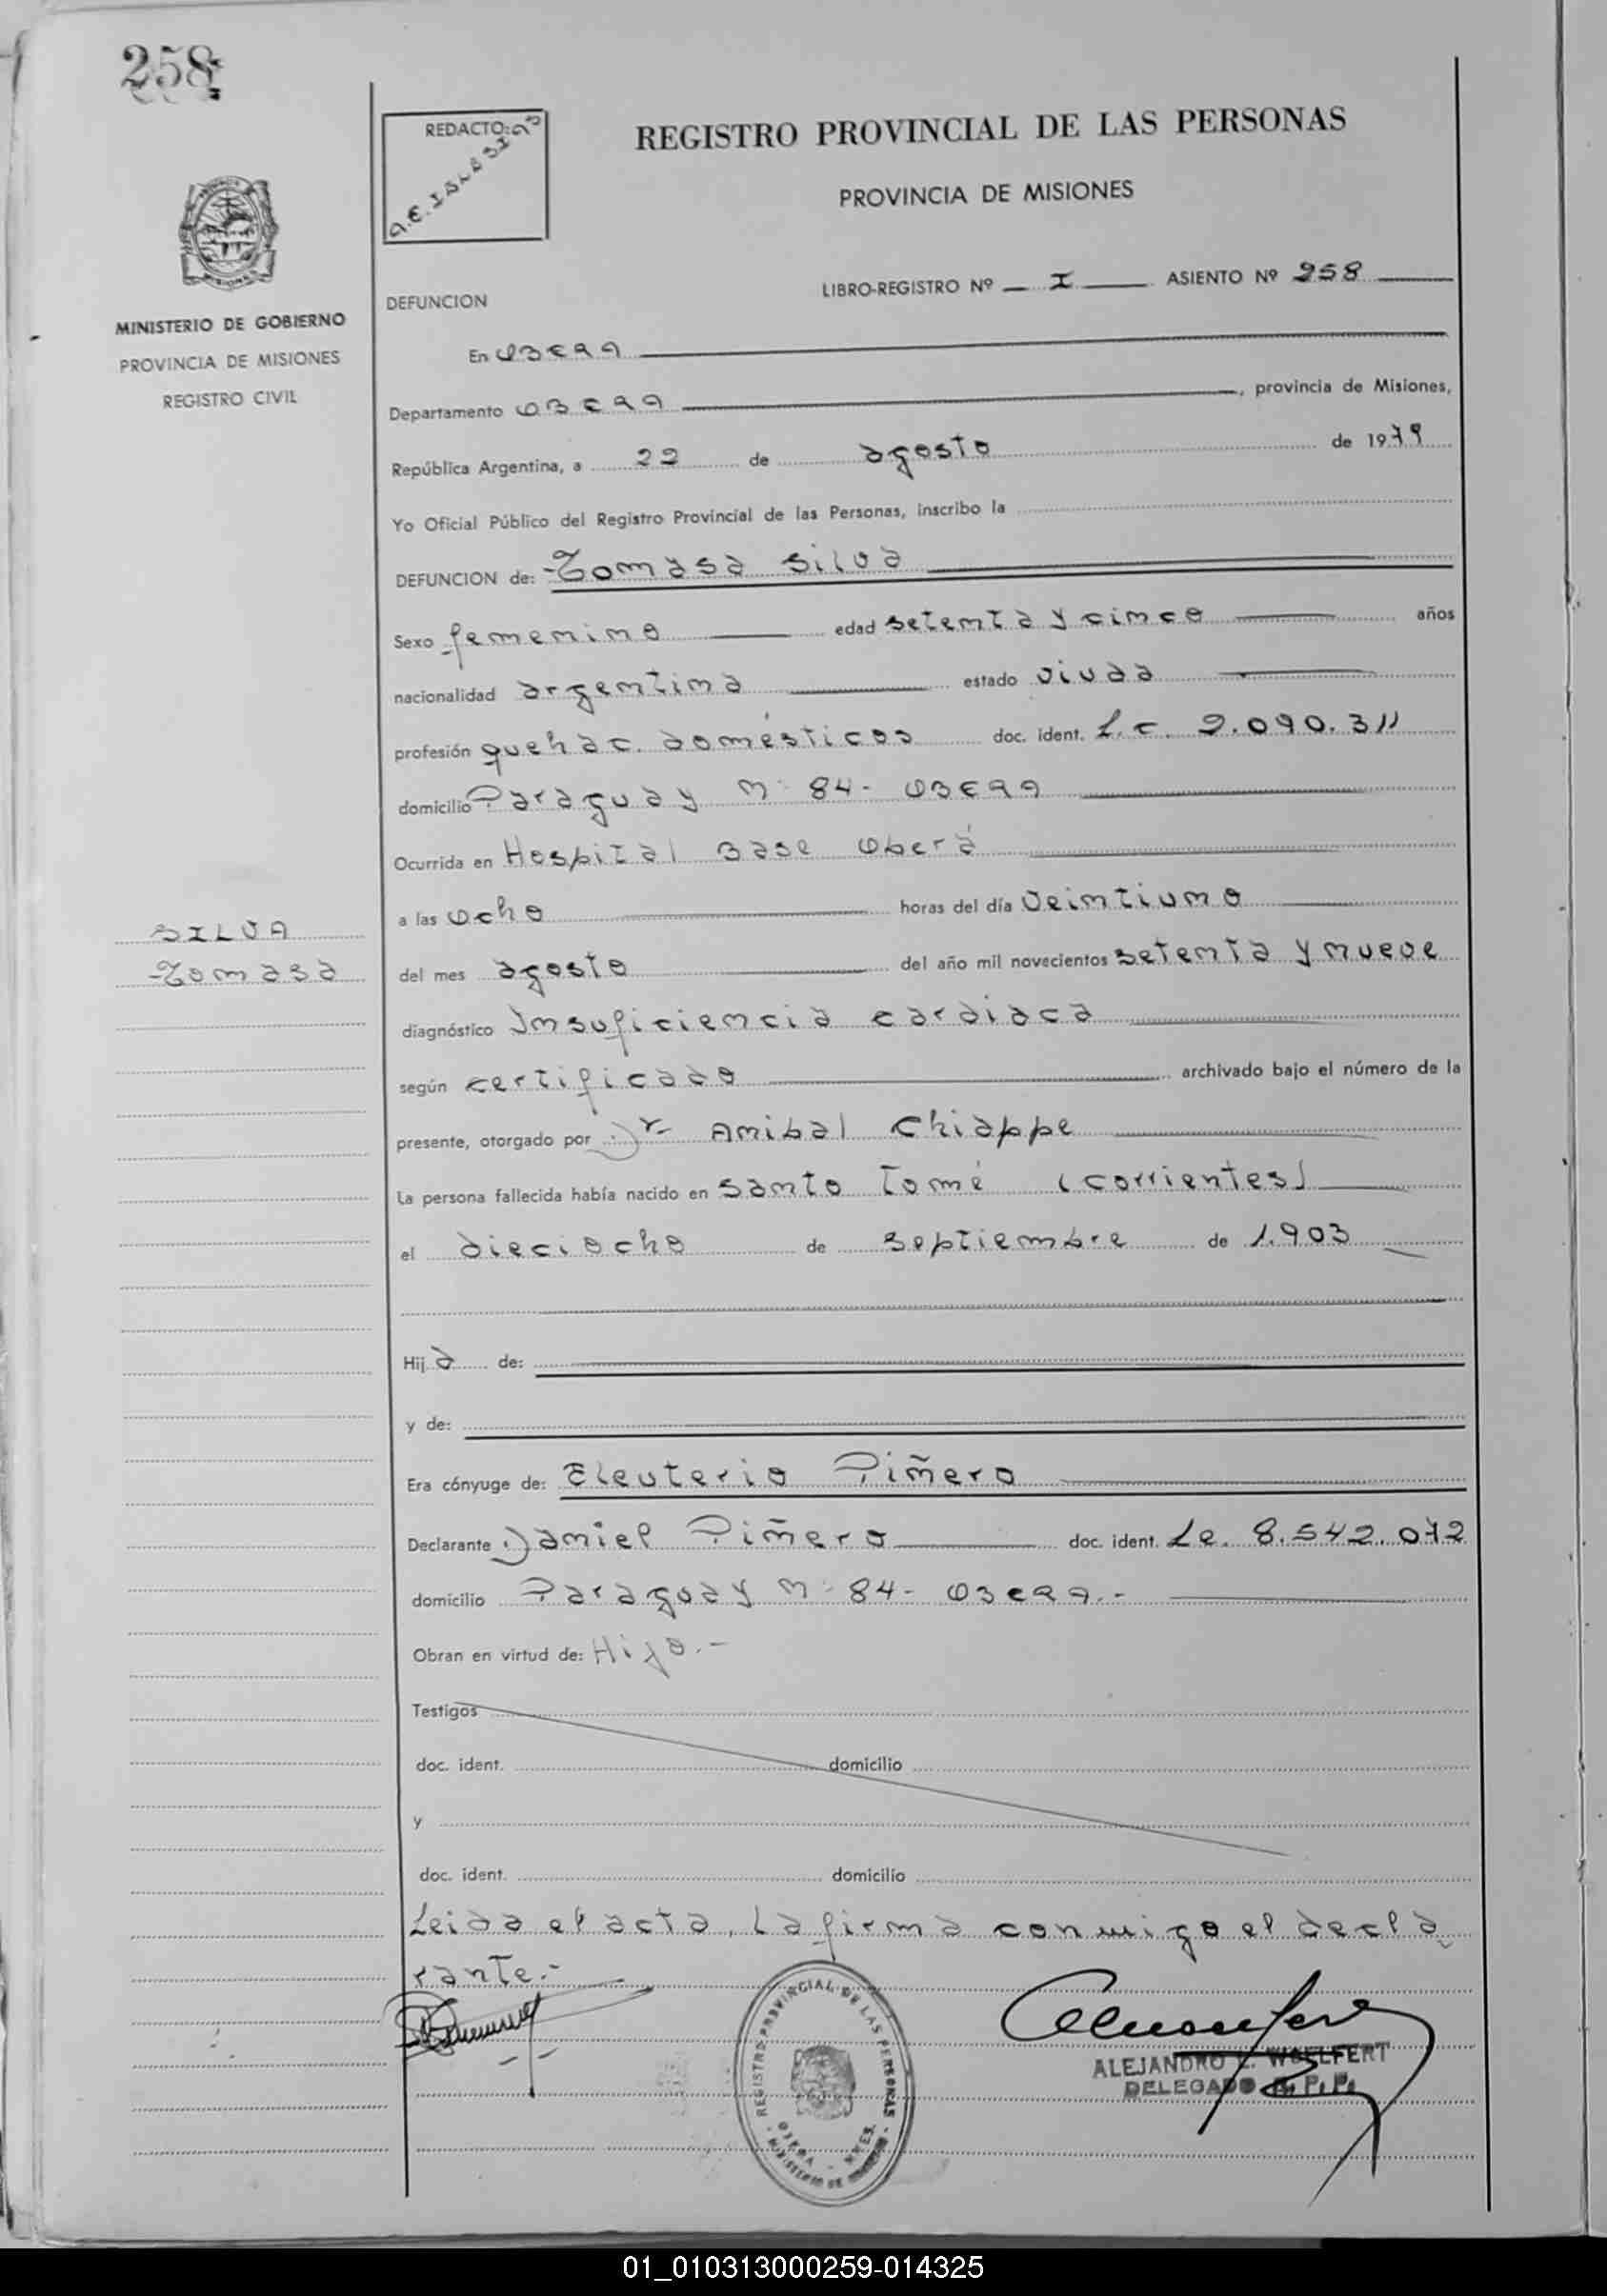 258
REDACTO:
REGISTRO PROVINCIAL DE LAS PERSONAS
PROVINCIA DE MISIONES
MINISTERIO DE GOBIERNO
PROVINCIA DE MISIONES
REGISTRO CIVIL
LIBRO-REGISTRO Nº I ASIENTO Nº 258
DEFUNCION
En OBERA
Departamento OBERA, provincia de Misiones,
República Argentina, a 22 de agosto de 1979
Yo Oficial Público del Registro Provincial de las Personas, inscribo la
DEFUNCION de: Tomasa Silva
Sexo femenino edad setenta y cinco años
nacionalidad argentina estado viuda
profesión quehac. domésticos doc. ident. L.C. 2.090.311
domicilio Paraguay Nº 84- OBERA
Ocurrida en Hospital Base Oberá
a las ocho horas del día veintiuno
del mes agosto del año mil novecientos setenta y nueve
diagnóstico Insuficiencia cardiaca
según certificado archivado bajo el número de la
presente, otorgado por Dr Anibal Chiappe
La persona fallecida había nacido en Santo Tomé (Corrientes)
el dieciocho de septiembre de 1.903
SILVA
Tomasa
Hija de:
y de:
Era cónyuge de: Eleuterio Piñero
Declarante Daniel Piñero doc. ident. L.e. 8.542.072
domicilio Paraguay Nº 84- OBERA.-
Obran en virtud de: Hijo.-
Testigos
doc. ident. domicilio
y
doc. ident. domicilio
Leida el acta, la firma conmigo el decla
rante.-
REGISTRO PROVINCIAL DE LAS PERSONAS
OBERA - MNES.
MINISTERIO DE GOBIERNO
ALEJANDRO E. WOELFERT
DELEGADO R. P. P.
01_010313000259-014325